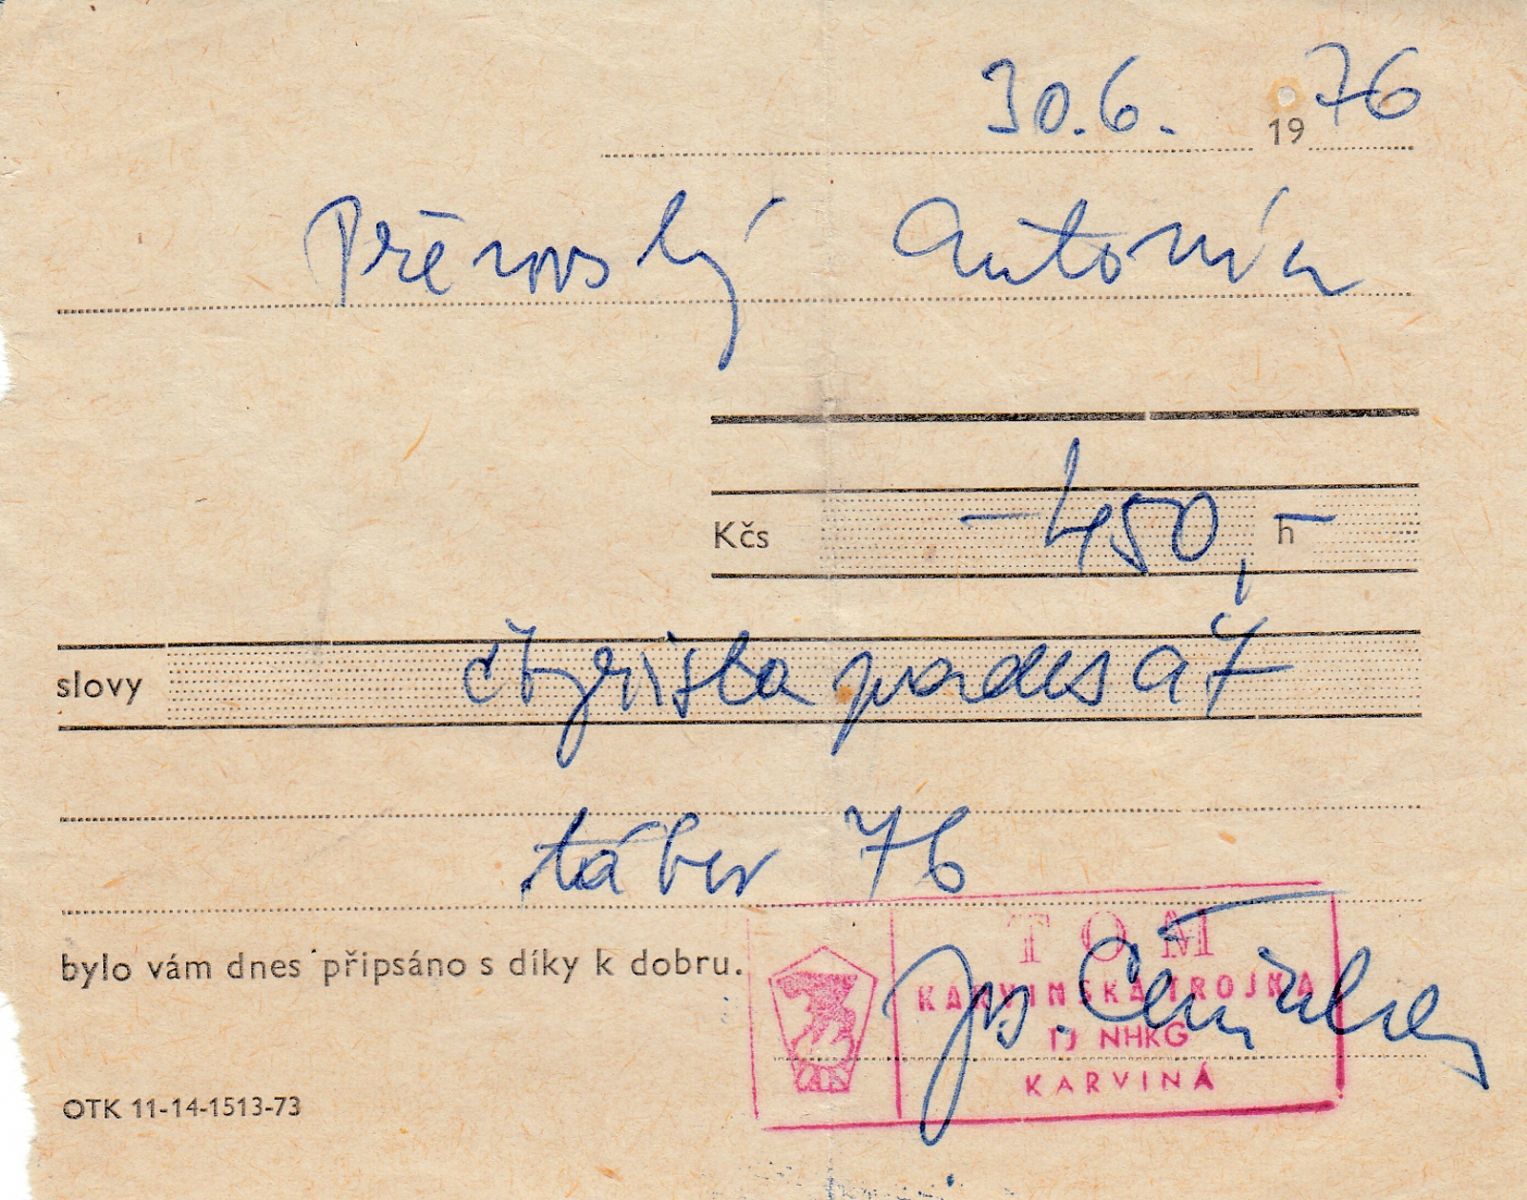 30.6. 1976
Přerovský Antonín
Kčs -450,- h
slovy čtyřistapadesát
tábor 76
bylo vám dnes připsáno s díky k dobru.
TOM
KARVINSKÁ TROJKA
TJ NHKG
KARVINÁ
OTK 11-14-1513-73